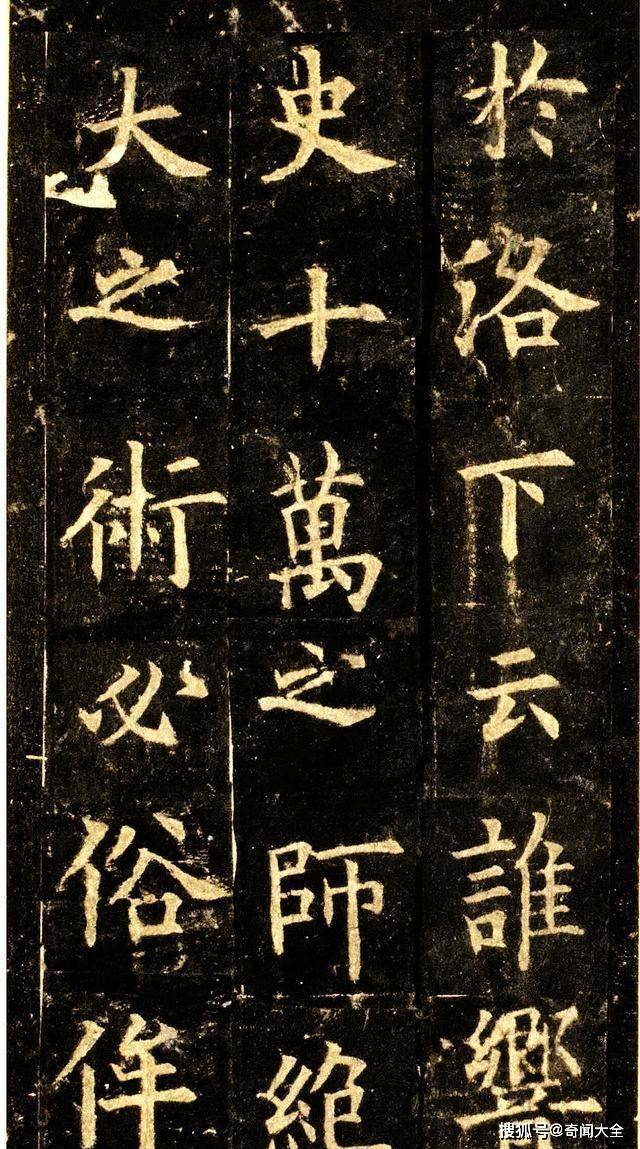 於洛下云誰響
史十萬之師絶
大之術必俗侔
搜狐号@奇闻大全